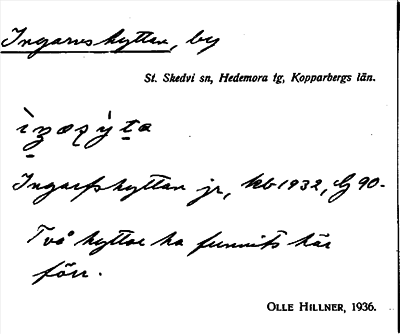 Ingarvshyttan, by
St. Skedvi sn, Hedemora tg, Kopparbergs län.
Ingarfshyttan jr, kb 1932, Lj 90.
Två hyttor ha funnits här
förr.
OLLE HILLNER, 1936.